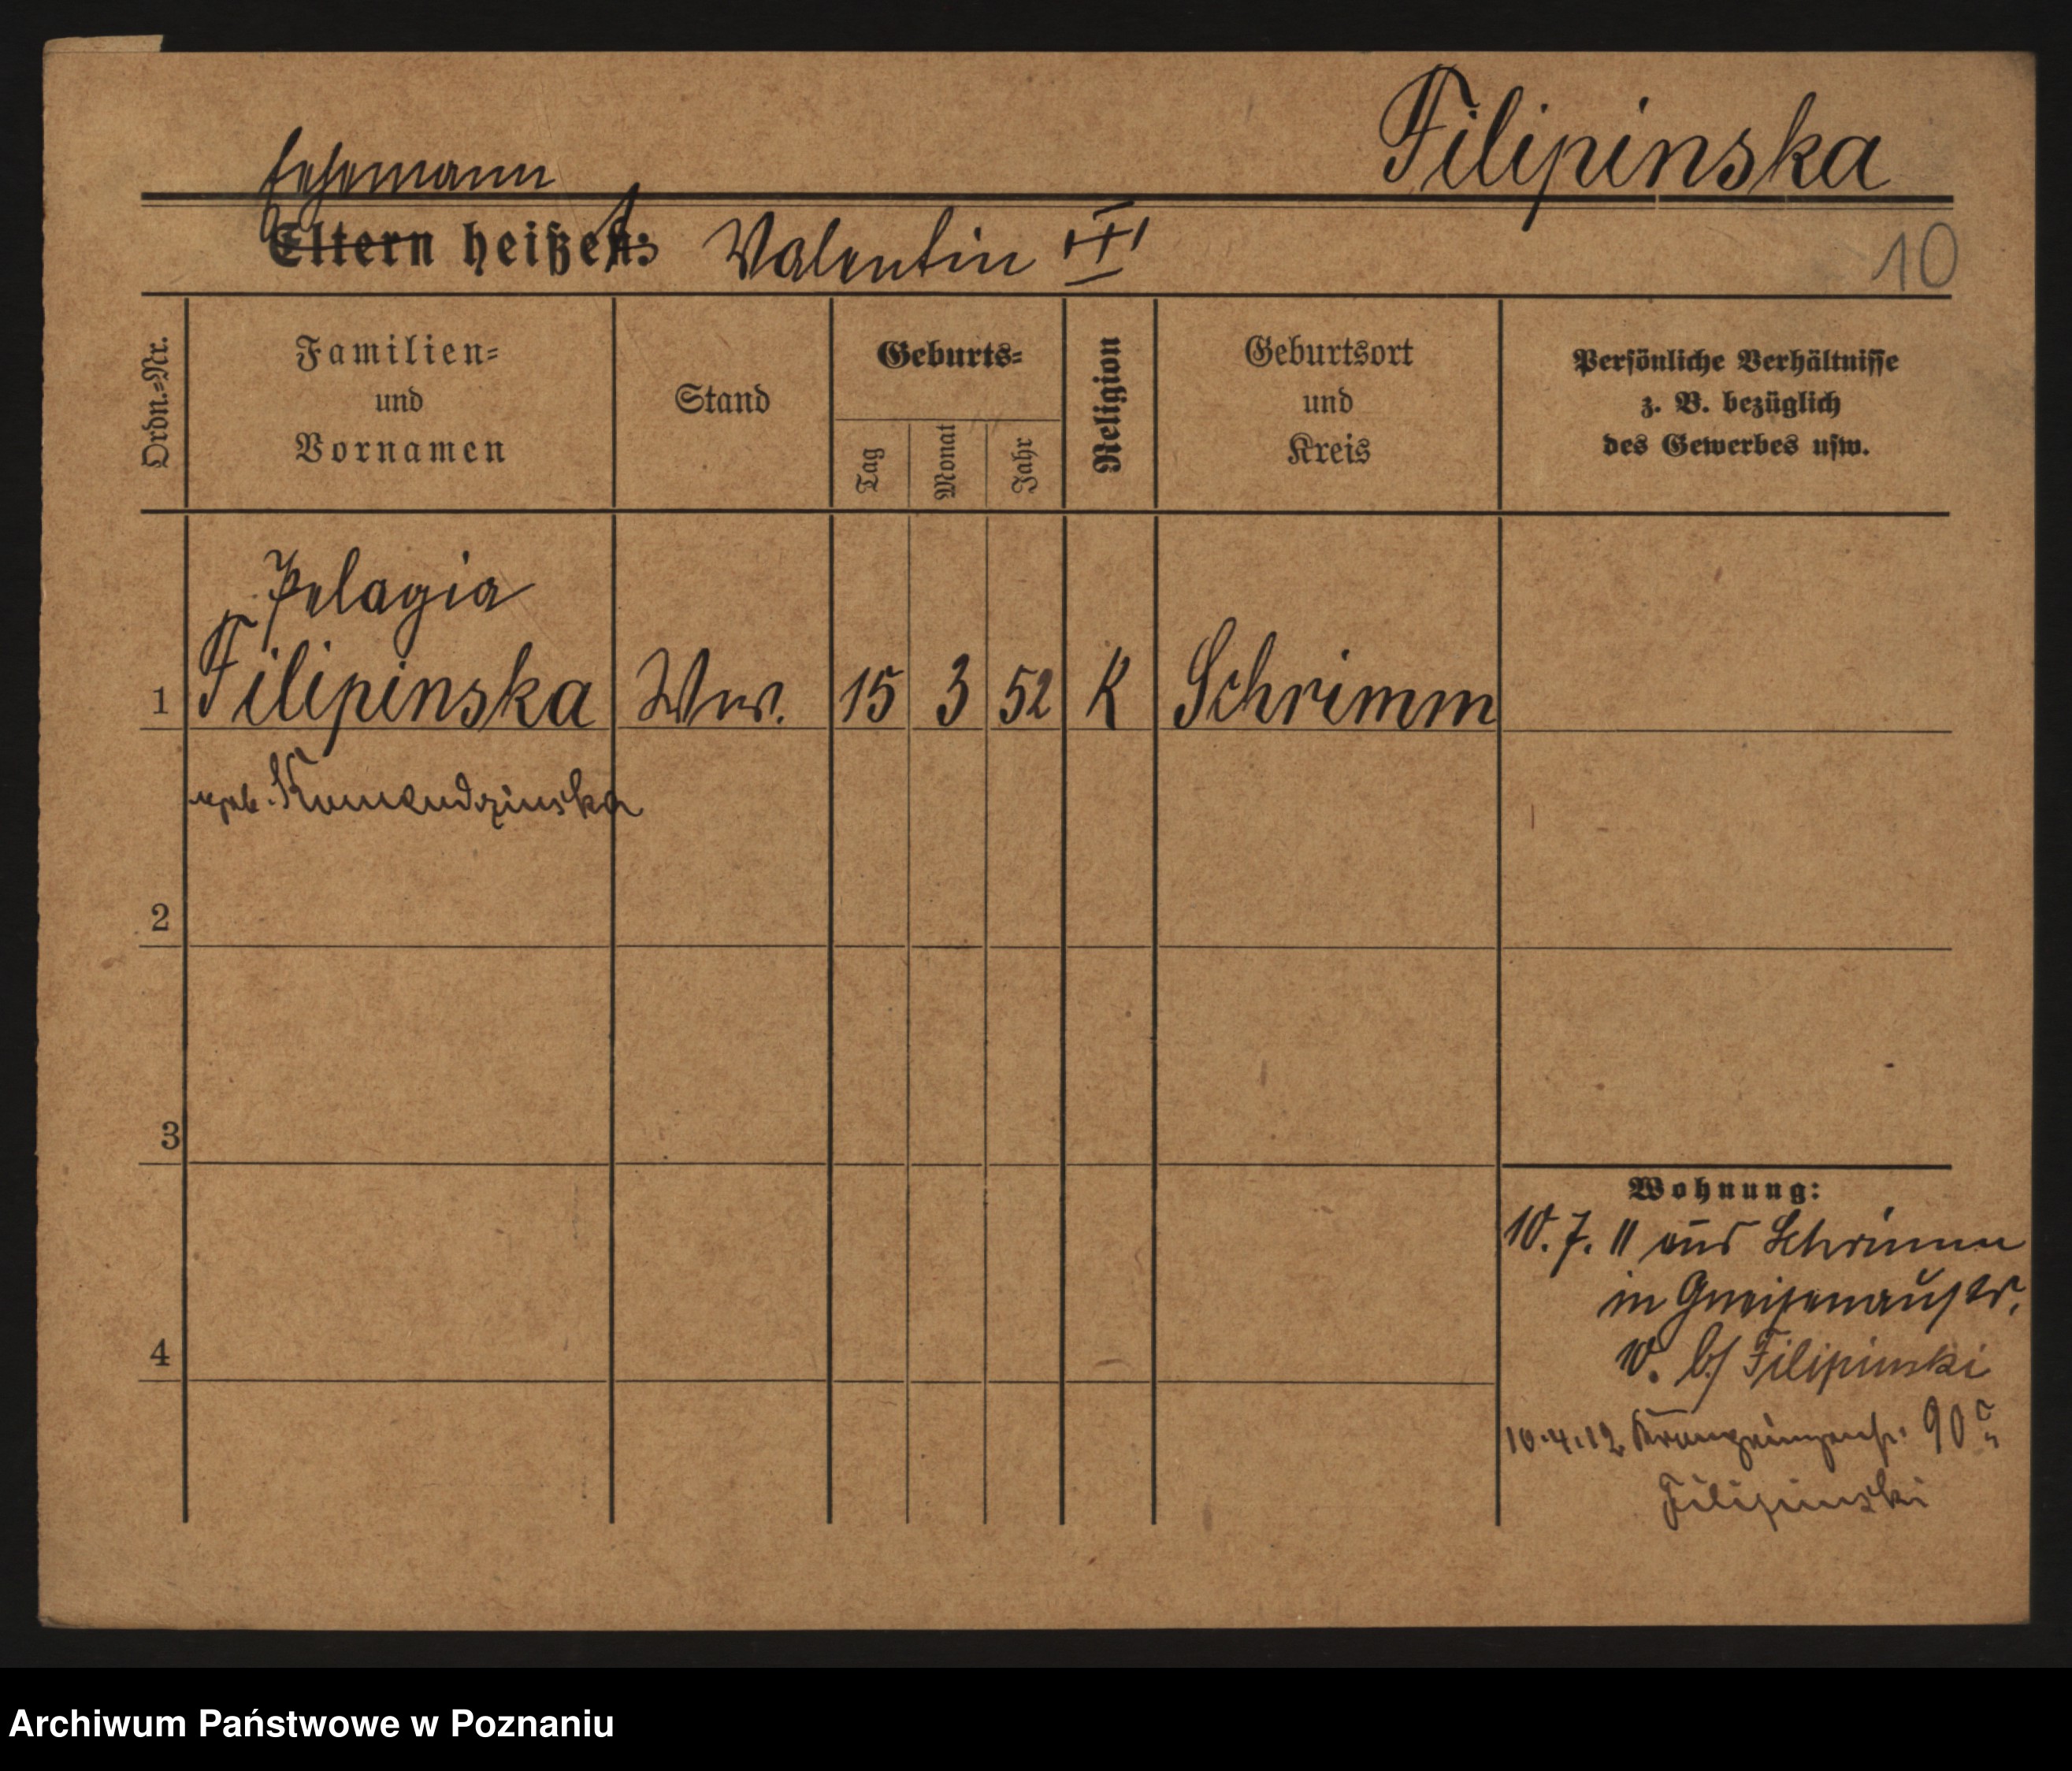 Filipinska
Ehemann
Eltern heißen: Valentin
10
Ordn.=Nr.
Familien=
und
Vornamen
Stand
Geburts=
Tag
Monat
Jahr
Religion
Geburtsort
und
Kreis
Persönliche Verhältnisse
z. B. bezüglich
des Gewerbes usw.
Pelagia
1 Filipinska Ww. 15 3 52 K Schrimm
geb. Komendzinska
2
3
4
Wohnung:
10. 7. 11 aus Schrimm
in Gneisenaustr.
b/ Filipinski
10.4.12 90
Filipinski
Archiwum Państwowe w Poznaniu